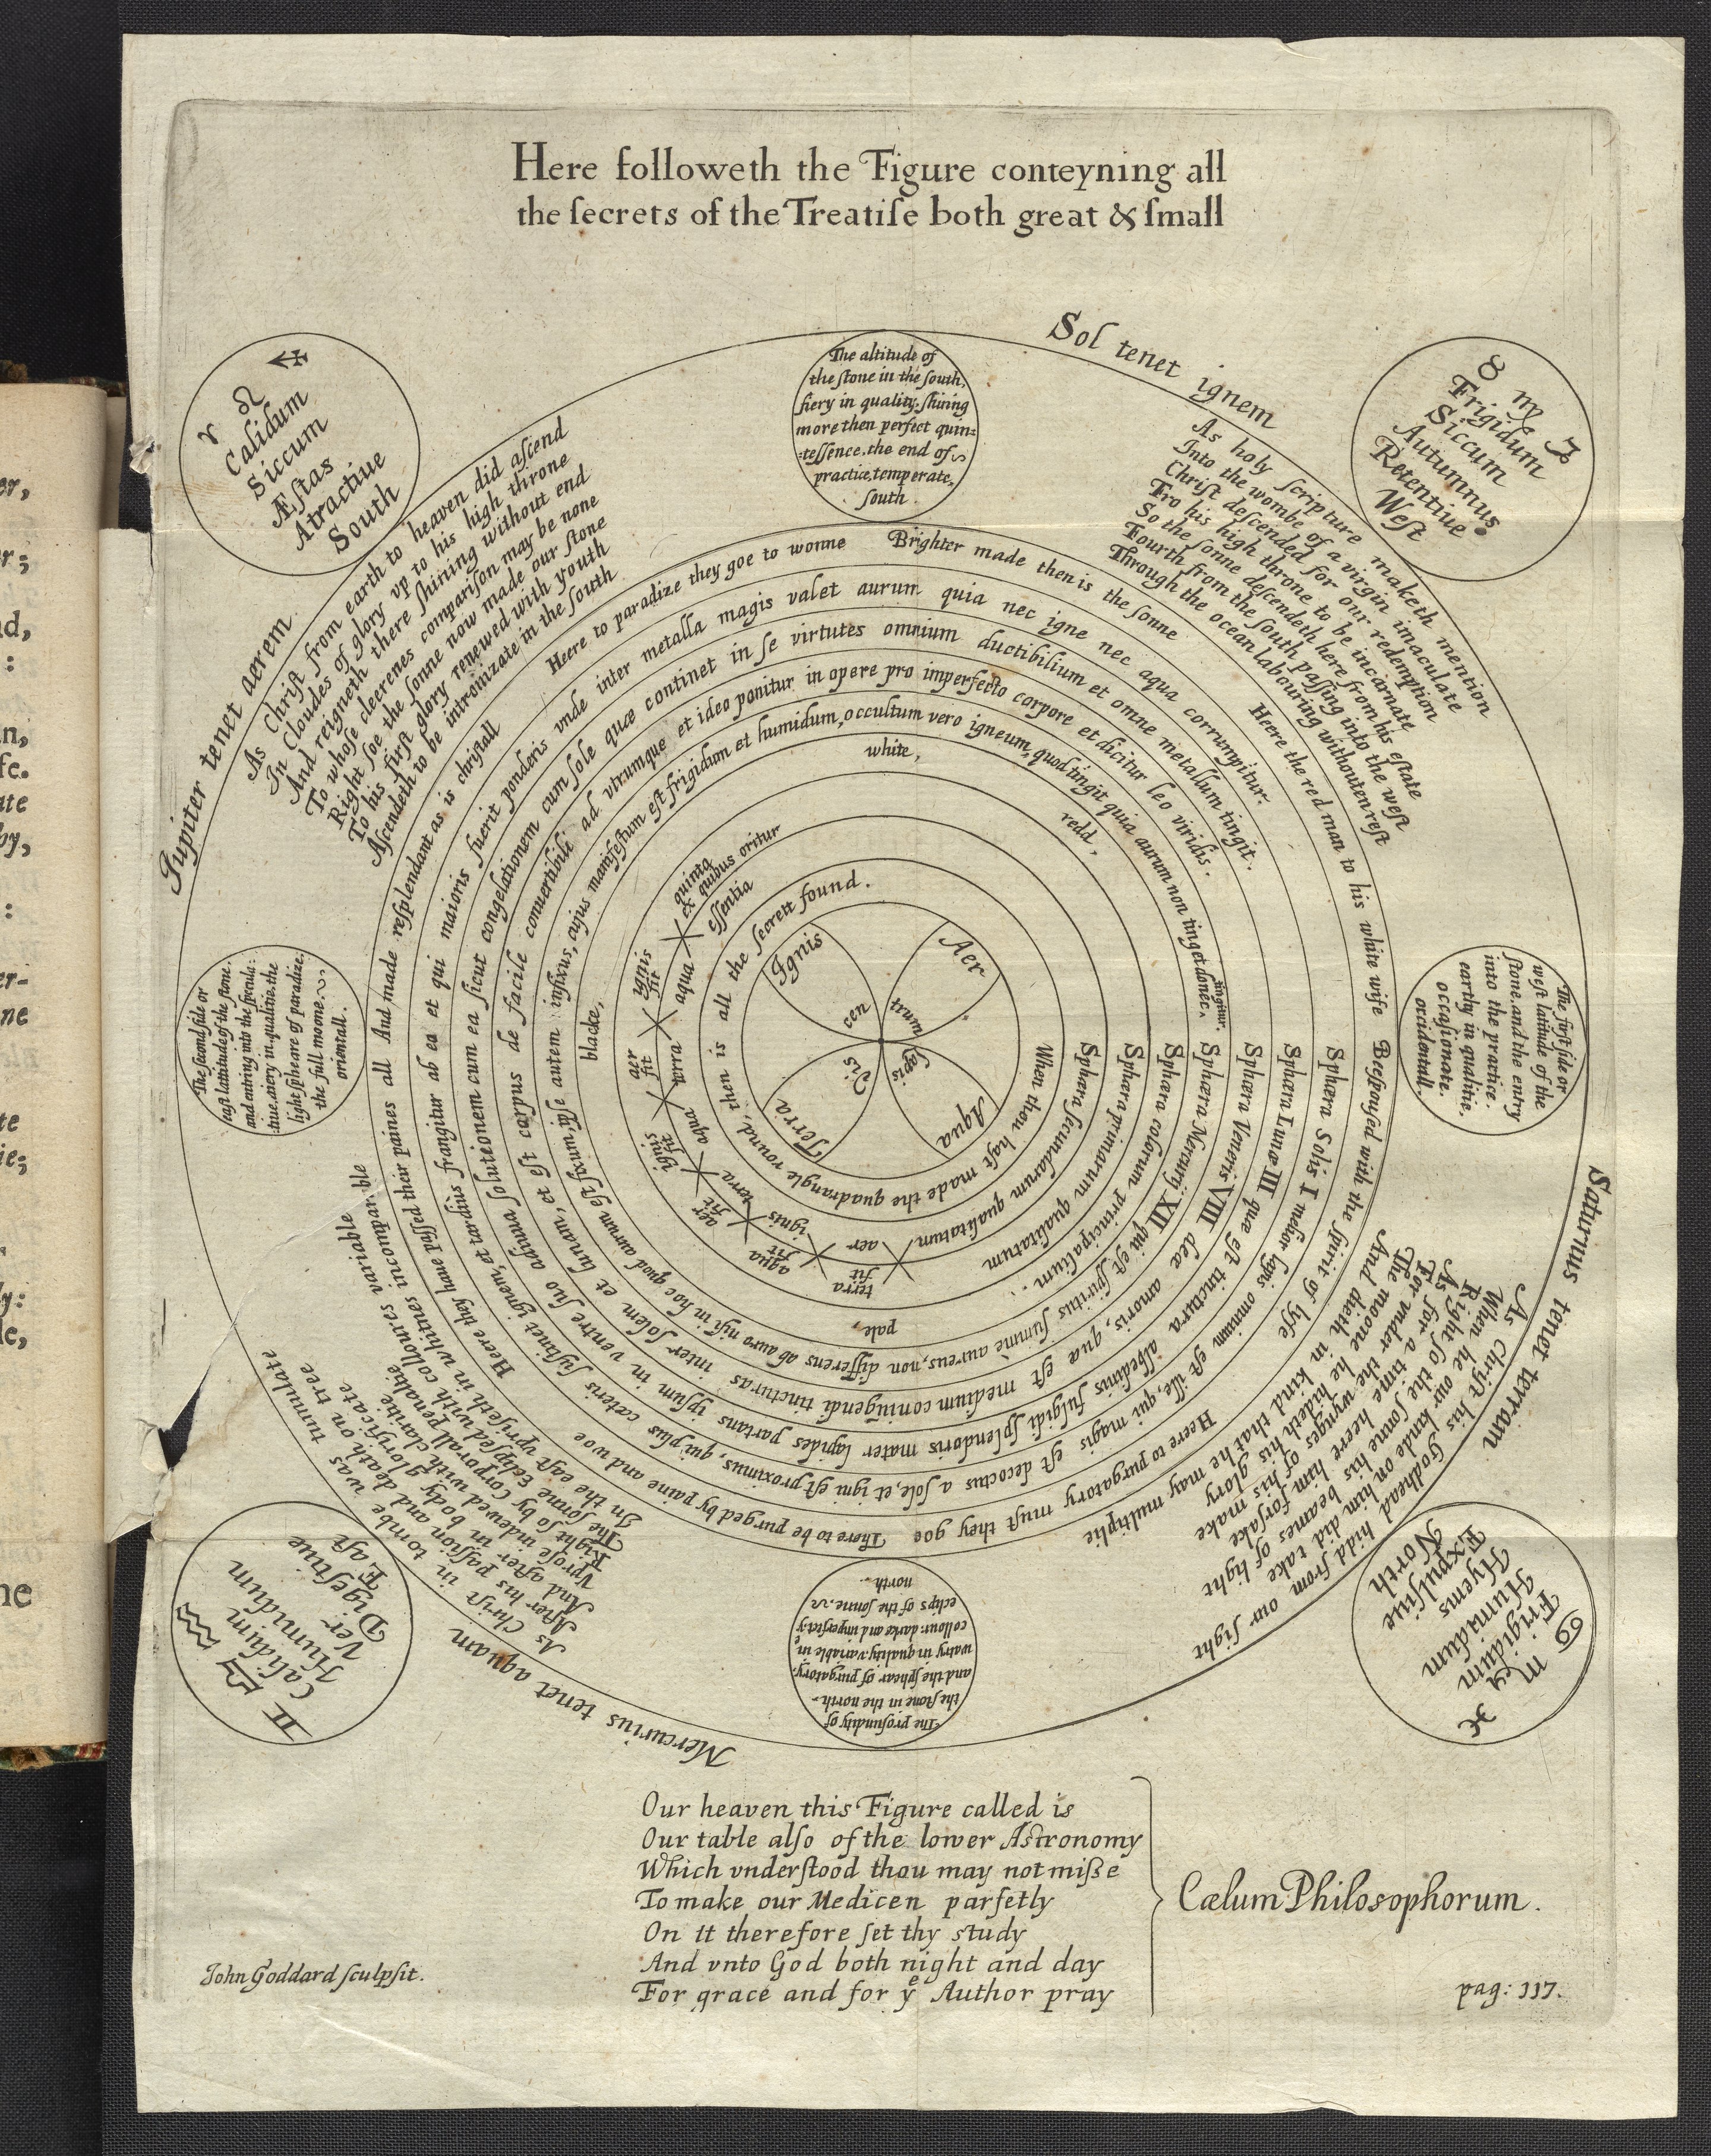 Here followeth the Figure conteyning all
the ſecrets of the Treatiſe both great & ſmall
Sol tenet ignem
The altitude of
the ſtone in the ſouth,
fiery in quality. ſhining
more then perfect quin=
=teſſence. the end of
practice, temperate,
ſouth.
♈ ♌ ♐
Calidum
Siccum
Æſtas
Atractiue
South
♉ ♍ ♑
Frigidum
Siccum
Autumnus
Retentiue
Weſt
Jupiter tenet aerem
As Chriſt from earth to heaven did aſciend
In Cloudes of glory vp to his high throne
And reigneth there ſhining without end
To whoſe cleerenes compariſon may be none
Right ſoe the ſonne now made our ſtone
To his firſt glory renewed with youth
Aſcendeth to be intronizate in the ſouth
As holy ſcripture maketh mention
Into the wombe of a virgin imaculate
Chriſt deſcended for our redemption
Fro his high throne to be incarnate
So the ſonne deſcendeth here from his eſtate
Fourth from the ſouth paſſing into the weſt
Through the ocean labouring withouten reſt
The firſt ſide or
weſt latitude of the
ſtone. and the entry
into the practice.
earthy in qualitie,
occaſionate.
occidentall.
The ſecond ſide or
eaſt latitude of the ſtone.
and entring into the ſpecula:
:tiue. aiery in qualitie. the
light ſpheare of paradize.
the full moone.
orientall.
Saturnus tenet terram
As Chriſt his Godhead hidd from our ſight
When he our kinde on him did take
Right ſo the ſonne his beames of light
As for a time heere him forſake
For vnder the wynges of his make
The moone he hideth his glory
And dieth in kind that he may multiplie
Mercurius tenet aquam
As Chriſt in tombe was tumulate
After his paſſion and death on tree
And after in body glorificate
Vproſe indewed with clarite
Right ſo by corporall penaltie
The ſonne Eclipſed with collours variable
In the eaſt vpriſeth in whitnes incomparable
♊ ♎ ♒
Calidum
Humidum
Ver
Digeſtiue
Eaſt
♋ ♏ ♓
Frigidum
Humadum
Hyems
Expulſiue
North
The profundity of
the ſtone in the north.
and the ſphear of purgatory.
watry in quality. variable in
collour. darke and imperfect.
eclips of the ſonne.
north.
Heere the red man to his white wife
Beeſpouſed with the ſpirit of lyfe
Heere to purgatory muſt they goe
There to be purged by paine and woe
Heere they have paſſed their paines all
And made reſplendant as is chriſtall
Heere to paradize they goe to wonne
Brighter made then is the ſonne
Sphæra Solis I melior lapis omnium eſt ille, qui magis eſt decoctus a ſole, et igni eſt proximus, qui plus cæteris ſuſtinet ignem, et tardius frangitur ab ea et qui maioris fuerit ponderis vnde inter metalla magis valet aurum quia nec igne nec aqua corrumpitur.
Sphæra Lunæ III quæ eſt tinctura albedinis fulgidi ſplendoris mater lapides partans ipſum in ventre ſuo adiuua ſolutionem cum ea ſicut congelationem cum ſole quæ continet in ſe virtutes omnium ductibilium et omne metallum tingit.
Sphæra Veneris VIII dea amoris, quæ eſt medium coniungendi tincturas inter ſolem et lunam, et eſt corpus de facile conuertibili ad vtrumque et ideo ponitur in opere pro imperfecto corpore et dicitur leo viridis.
Sphæra Mercurij XII qui eſt ſpiritus ſummè aureus, non differens ab auro niſi in hoc quod aurum eſt fixum, ipſe autem infixus, cujus manifeſtum eſt frigidum et humidum, occultum vero igneum, quod tingit quia aurum non tinget donec tingitur.
Sphæra colorum principalium.
pale
blacke,
white,
redd,
Sphæra primarum qualitatum
Sphæra ſecundarum qualitatum
aer
terra
fit
ignis
aqua
fit
terra
aer
fit
aqua
ignis
fit
terra
aer
fit
aqua
ignis
fit
quinta
ex quibus oritur
eſſentia
When thou haſt made the quadrangle round, then is all the ſecrett found.
Ignis
Aer
Terra
Aqua
cen
trum
Lapis
dis
Our heaven this Figure called is
Our table alſo of the lower Astronomy
Which vnderſtood thou may not miſse
To make our Medicen parfetly
On it therefore ſet thy study
And vnto God both night and day
For grace and for yᵉ Author pray
Cælum Philosophorum.
John Goddard ſculpſit.
pag: 117.